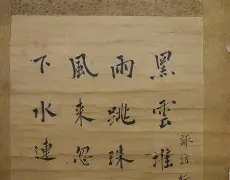 黒雲堆
雨跳珠
風来忽
下水連